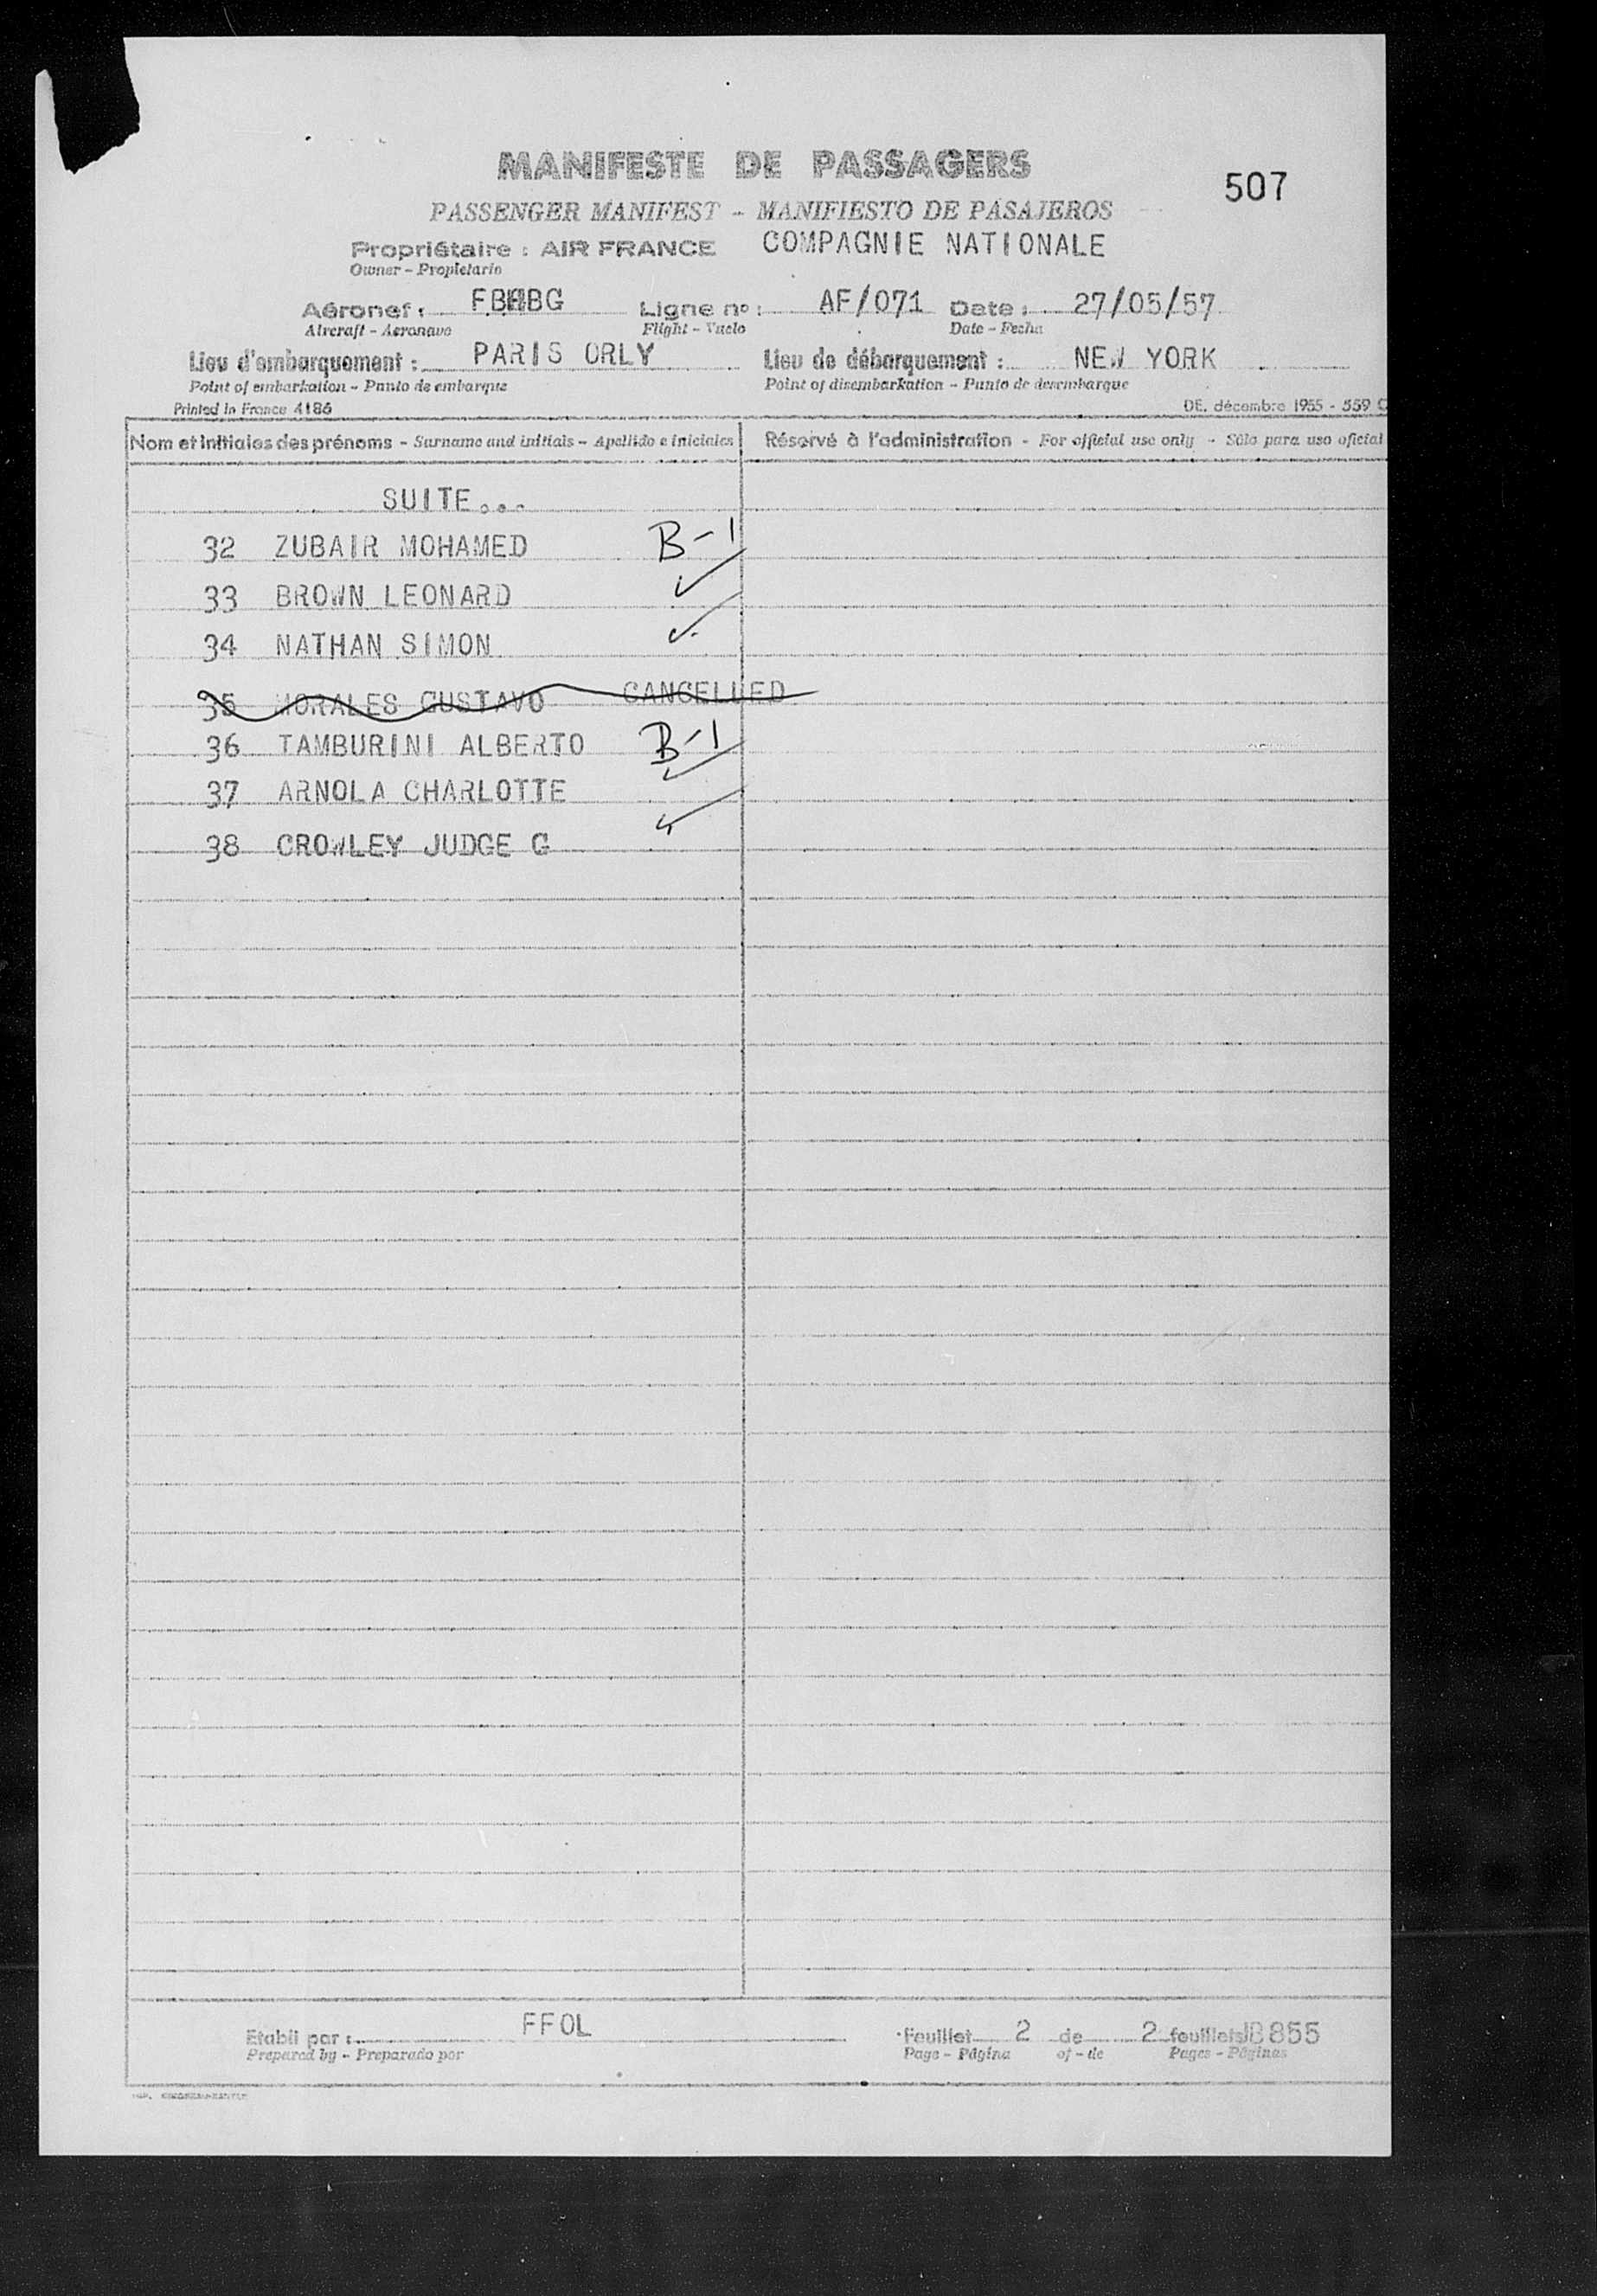 MANIFESTE DE PASSAGERS
507
PASSENGER MANIFEST - MANIFIESTO DE PASAJEROS
Propriétaire : AIR FRANCE COMPAGNIE NATIONALE
Owner - Propietario
Aéronef : Ligne no : AF/071 Date : 27/05/57
Aircraft - Aeronave Flight - Vuelo Date - Fecha
Lieu d'embarquement : PARIS ORLY Lieu de débarquement : NEW YORK
Point of embarkation - Punto de embarque Point of disembarkation - Punto de desembarque
Printed in France 4186 DE. décembre 1955 - 559 C
Nom et initiales des prénoms - Surname and initials - Apellido e iniciales Réservé à l'administration - For official use only - Sólo para uso oficial
SUITE...
32 ZUBAIR MOHAMED B-1
33 BROWN LEONARD ✓
34 NATHAN SIMON ✓
35 MORALES GUSTAVO CANCELLED
36 TAMBURINI ALBERTO B-1
37 ARNOLA CHARLOTTE ✓
38 CROWLEY JUDGE G ✓
Etabli par : FFOL Feuillet 2 de 2 feuillets JB855
Prepared by - Preparado por Page - Página of - de Pages - Páginas